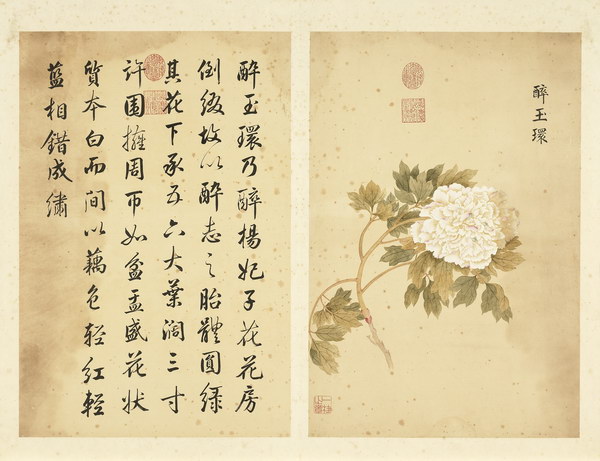 醉玉環
醉玉環乃醉楊妃子花花房
倒綴故以醉志之胎體圓綠
其花下承五六大葉闊三寸
許圍擁周帀如盆盂盛花狀
質本白而間以藕色輕紅輕
藍相錯成繡